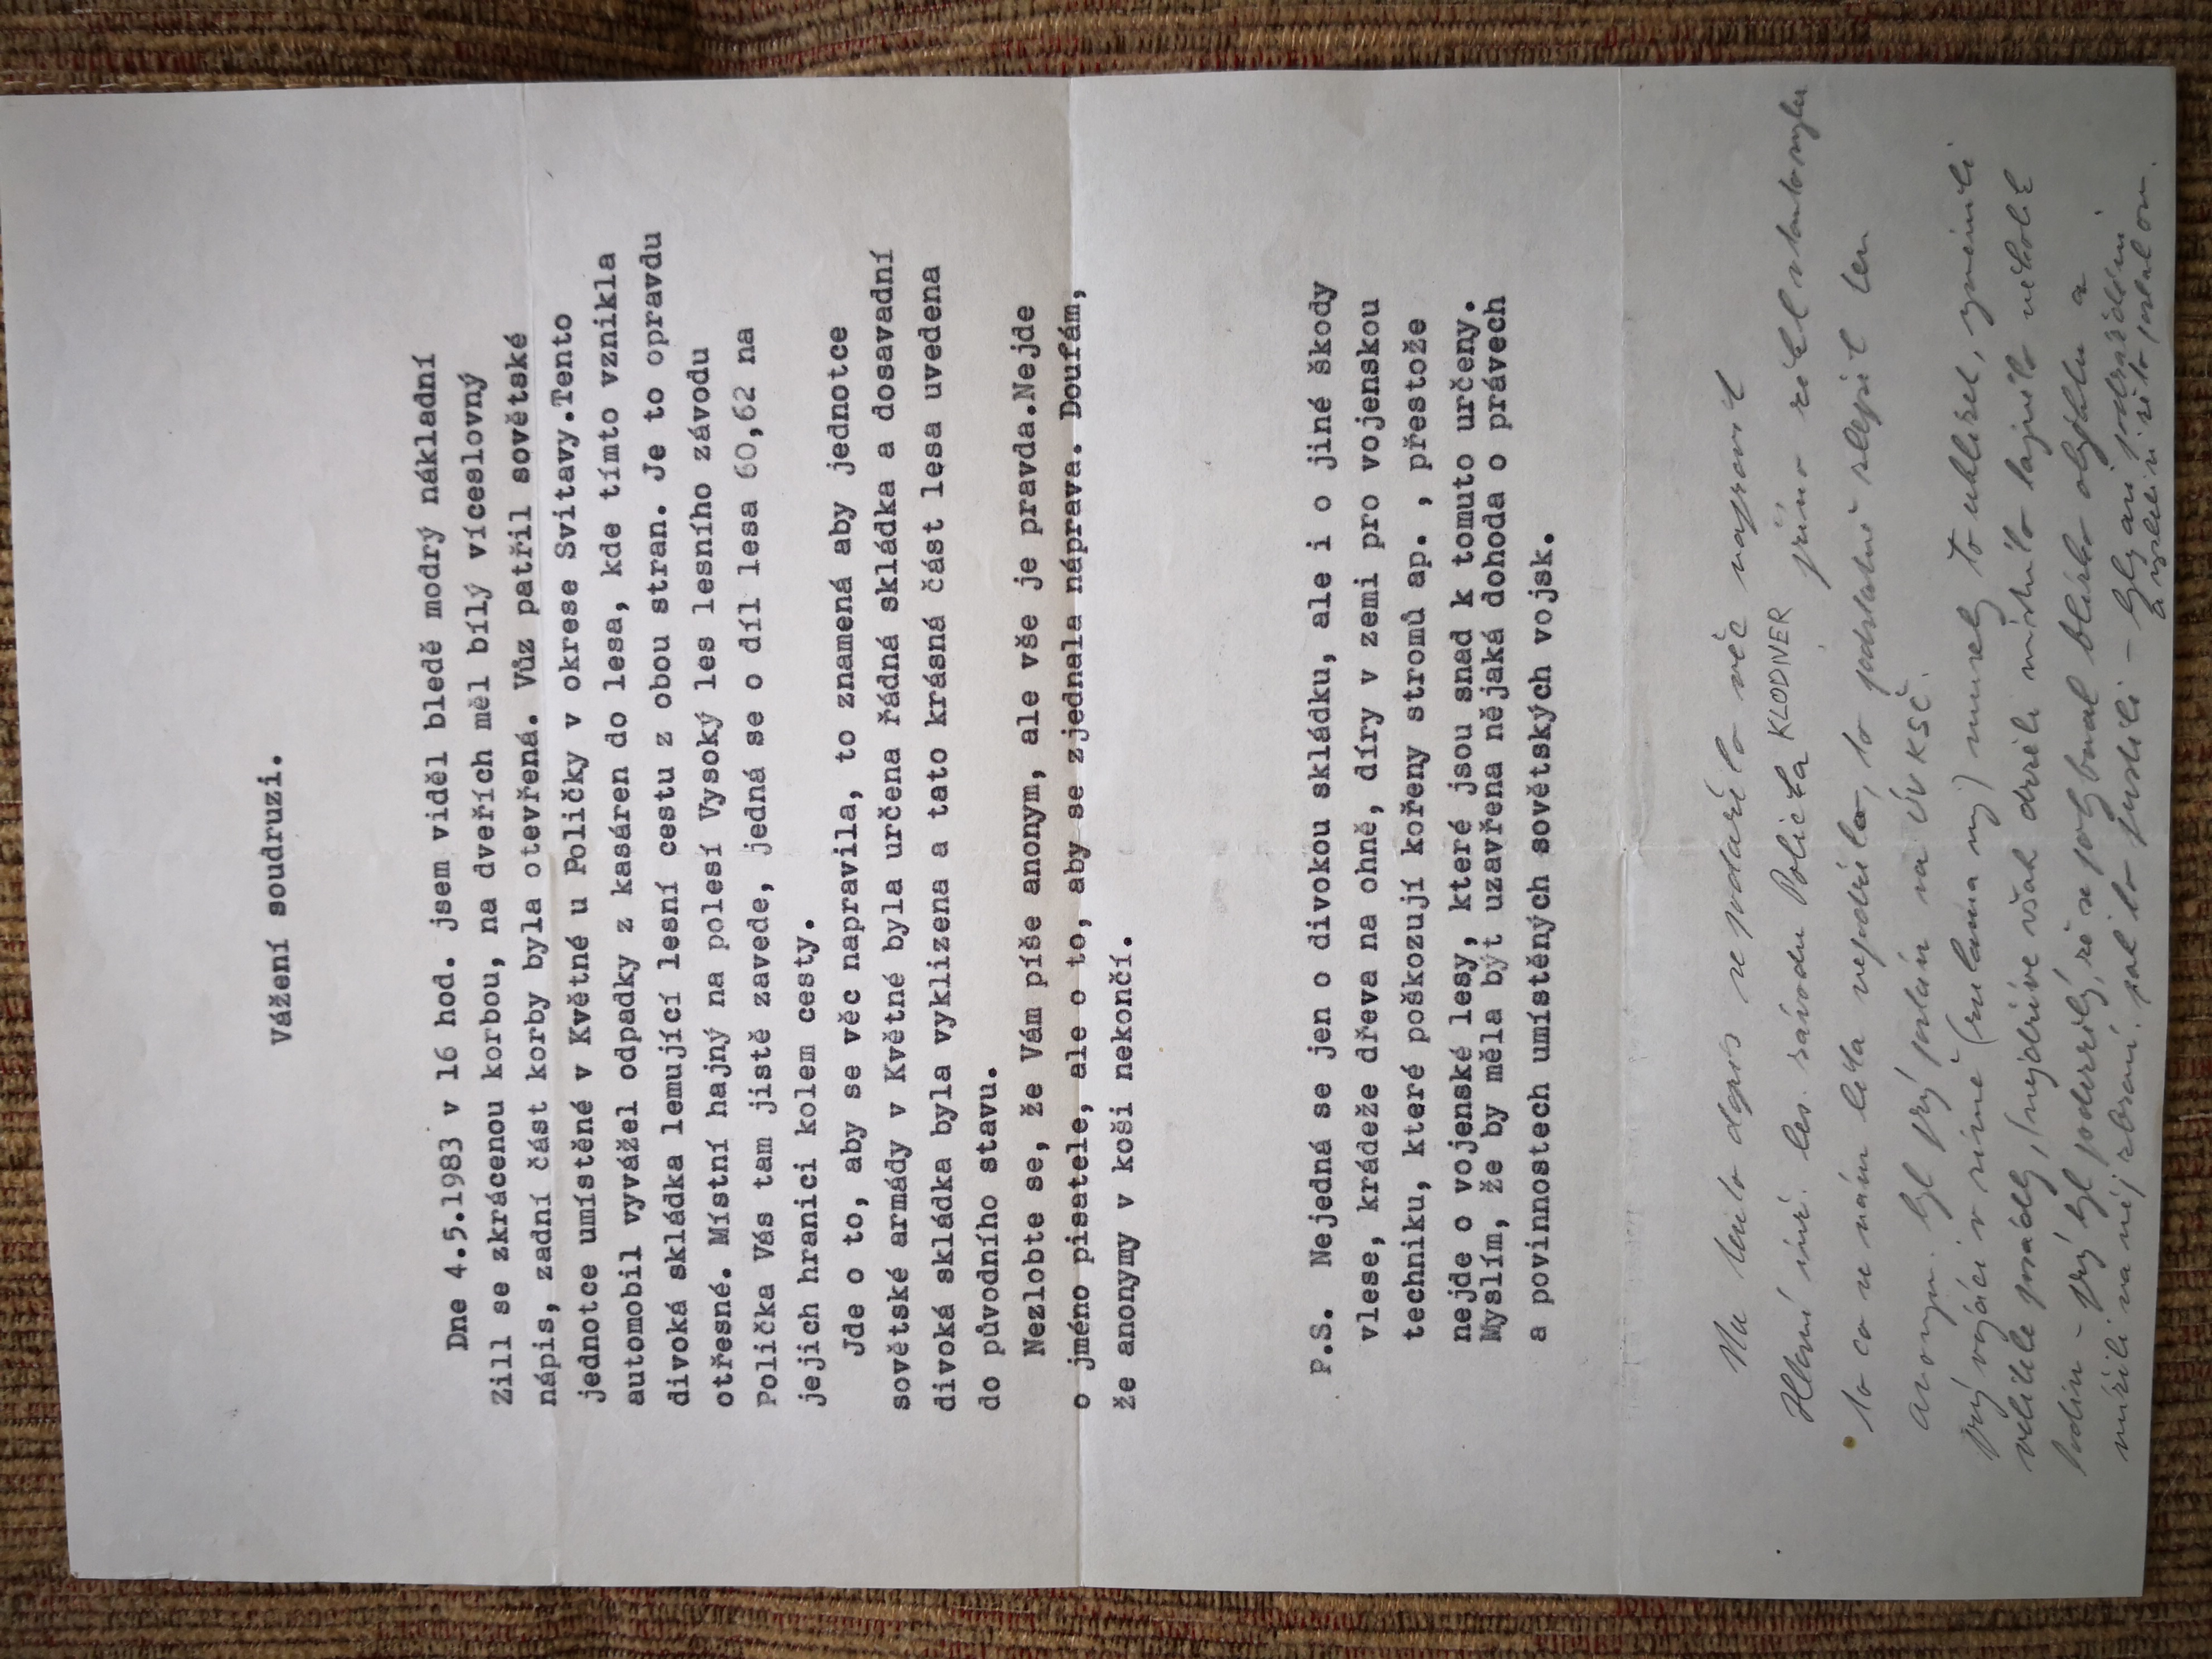 Vážení soudruzi.
Dne 4.5.1983 v 16 hod. jsem viděl bledě modrý nákladní
Zill se zkrácenou korbou, na dveřích měl bílý víceslovný
nápis, zadní část korby byla otevřená. Vůz patřil sovětské
jednotce umístěné v Květné u Poličky v okrese Svitavy.Tento
automobil vyvážel odpadky z kasáren do lesa, kde tímto vznikla
divoká skládka lemující lesní cestu z obou stran. Je to opravdu
otřesné. Místní hajný na polesí Vysoký les lesního závodu
Polička Vás tam jistě zavede, jedná se o díl lesa 60,62 na
jejich hranici kolem cesty.
Jde o to, aby se věc napravila, to znamená aby jednotce
sovětské armády v Květné byla určena řádná skládka a dosavadní
divoká skládka byla vyklizena a tato krásná část lesa uvedena
do původního stavu.
Nezlobte se, že Vám píše anonym, ale vše je pravda.Nejde
o jméno pisatele, ale o to, aby se zjednala náprava. Doufám,
že anonymy v koši nekončí.
P.S. Nejedná se jen o divokou skládku, ale i o jiné škody
vlese, krádeže dřeva na ohně, díry v zemi pro vojenskou
techniku, které poškozují kořeny stromů ap. , přestože
nejde o vojenské lesy, které jsou snad k tomuto určeny.
Myslím, že by měla být uzavřena nějaká dohoda o právech
a povinnostech umístěných sovětských vojsk.
Na tento dopis se podařilo věc napravit
Hlavní inž. les. závodu Polička KLODNER přímo řekl
to co se nám léta nepodařilo, to podstatně zlepšil ten
anonym. Byl prý poslán na ÚV KSČ.
prý vojáci v zimě museli to uklízet,
velitele však místního hajného
prý byl podezřelý, že se pohyboval blízko objektu a
na něj zbraní. pak ho pustili